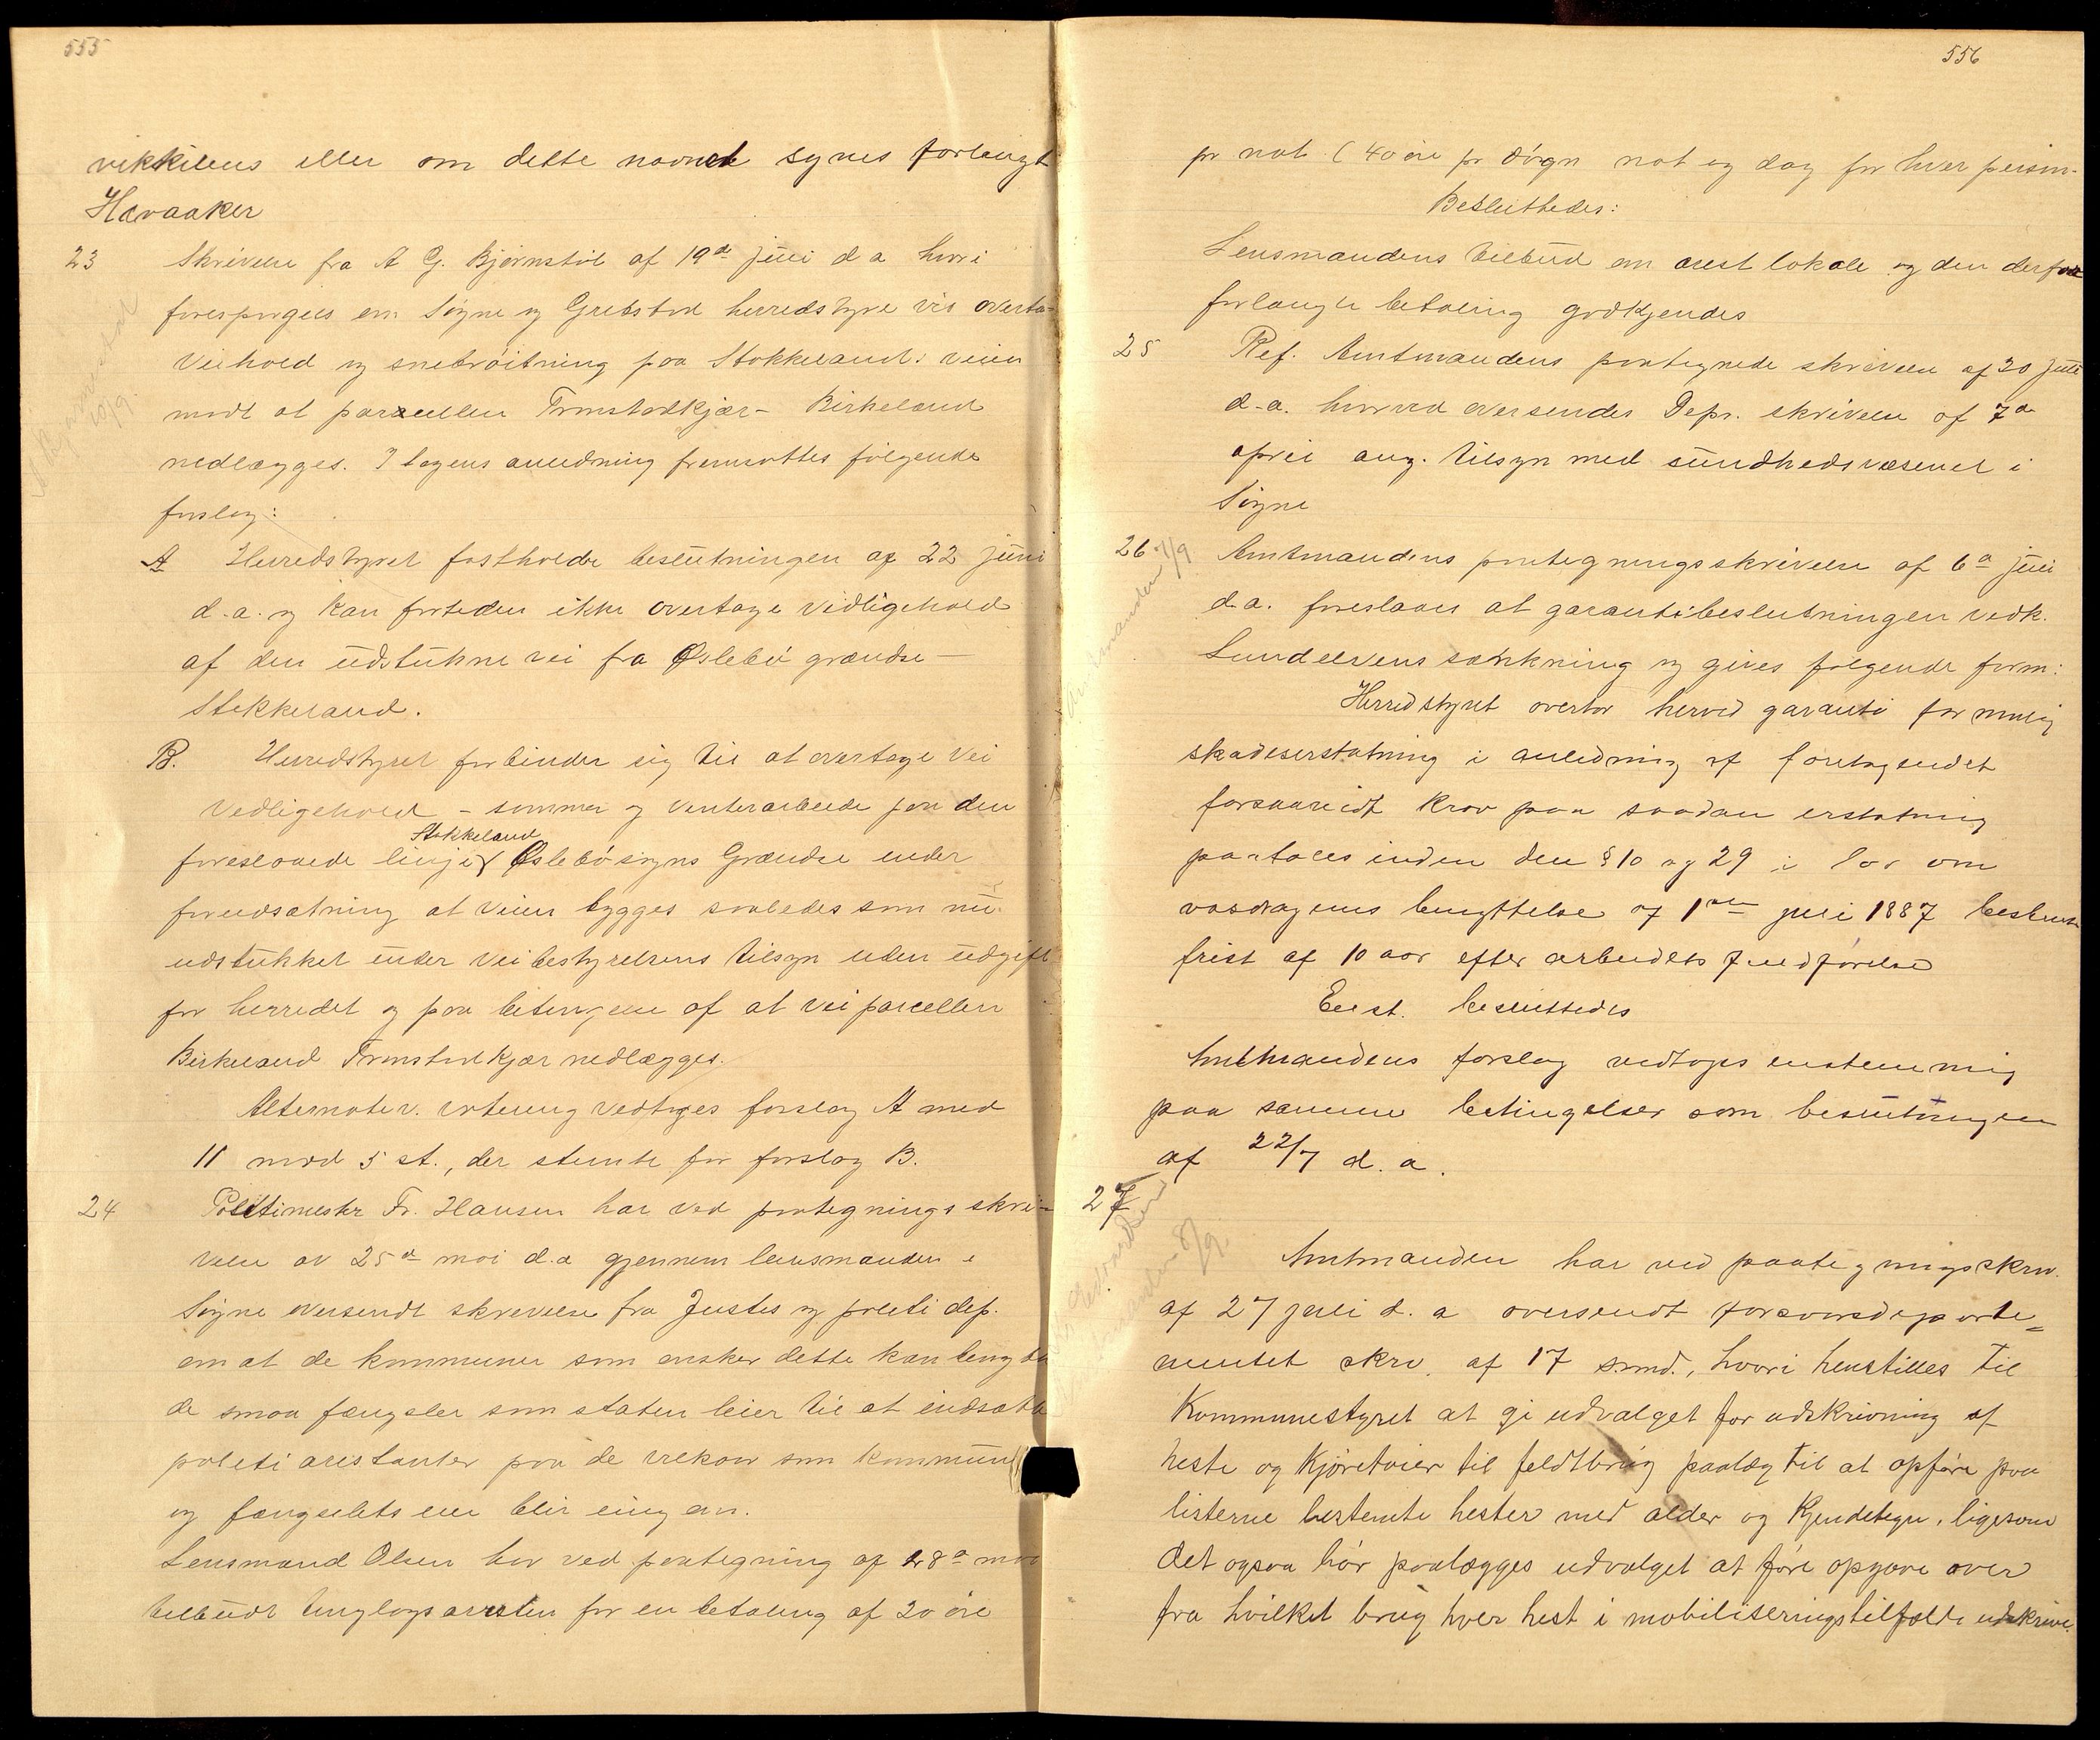 555
vikkilens eller om dette navnet synes forlengt
Havaaker
23 Skrivelse fra A G. Bjørnstøl af 19de juli d a hvori
forespørges om Søgne og Greibstad herredstyre vil overta
veihold og snebrøitning paa Stokkeland. veien
mod at parcellen Tronstadkjær - Birkeland
nedlægges. I sagens anledning fremsattes følgende
forslag:
A Herredstyret fastholder beslutningen af 22 juni
d.a. og kan fortiden ikke overtage vedligehold
af den udstukne vei fra Øslebø grændse -
Stokkeland.
B. Herredstyret forbinder sig til at overtage vei
vedligehold - sommer og vinterarbeide paa den
Stokkeland
foreslaaede linje Øslebø sogns Grændse under
forudsætning at veien bygges saaledes som nu
udstukket under veibestyrelsens tilsyn uden udgift
for herredet og paa betingelse af at veiparcellen
Birkeland Tronstadkjær nedlægges.
Alternativ. votering vedtoges forslag A med
11 mod 5 st., der stemte for forslag B.
24 Politimestr Fr. Hansen har ved paategningsskri-
velse av 25de mai d.a gjennem lensmanden i
Søgne oversendt skrivelse fra Justis og politi dep.
om at de kommuner som ønsker dette kan benytte
de smaa fængsler som staten leier til at indsætte
politi arrestanter paa de vilkaar som kommunen
og fængselets eier blir enig om.
Lensmand Olsen har ved paategning af 28de mai
tilbudt tinglagsarresten for en betaling af 20 øre
556
pr nat (40 øre pr døgn nat og dag for hver person.
Besluttedes:
Lensmandens tilbud om arest lokale og den derfor
forlangte betaling godkjendes
25 Ref. Amtmandens paategnede skrivelse af 20 juli
d.a. hvorved oversendes Depr. skrivelse af 7de
april ang. tilsyn med sundhedsvæsenet i
Søgne
26 Amtmandens paategningsskrivelse af 6te juli
d.a. foreslaaes at garantibeslutningen vedk.
Lundelvens sænkning og gives følgende form:
Herredstyret overtar herved garanti for mulig
skadeserstatning i anledning af foretagendet
forsaavidt krav paa saadan erstatning
paatales inden den § 10 og 29 i lov om
vasdragenes benyttelse af 1ste juli 1887 bestemte
frist af 10 aar efter arbeidets fuldførelse
Enst. besluttedes
Amtmandens forslag vedtages enstemmig
paa samme betingelser som beslutningen
af 22/7 d.a.
27
Amtmanden har ved paategningsskriv.
af 27 juli d. a oversendt forsvarsdeparte=
mentet skriv. af 17 s.md., hvori henstilles til
Kommunestyret at gi udvalget for udskrivning af
heste og Kjøretøier til feldtbrug paalæg til at opføre paa
listerne bestemte hester med alder og Kjendetegn, ligesom
det ogsaa bør paalægges udvalget at føre opgave over
fra hvilket brug hver hest i mobiliseringstilfælde udskrive.